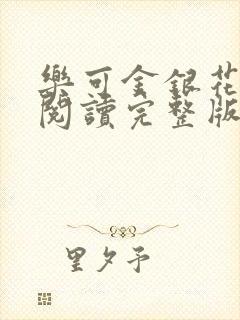 樂可金銀花
閱讀完整版
里夕予